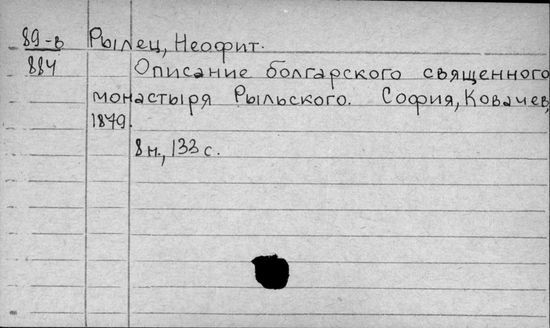 89-в Рылец, Неофит.
884 Описание болгарского священного
монастыря Рыльского. София, Ковачев,
1879.
8 н., 133 с.